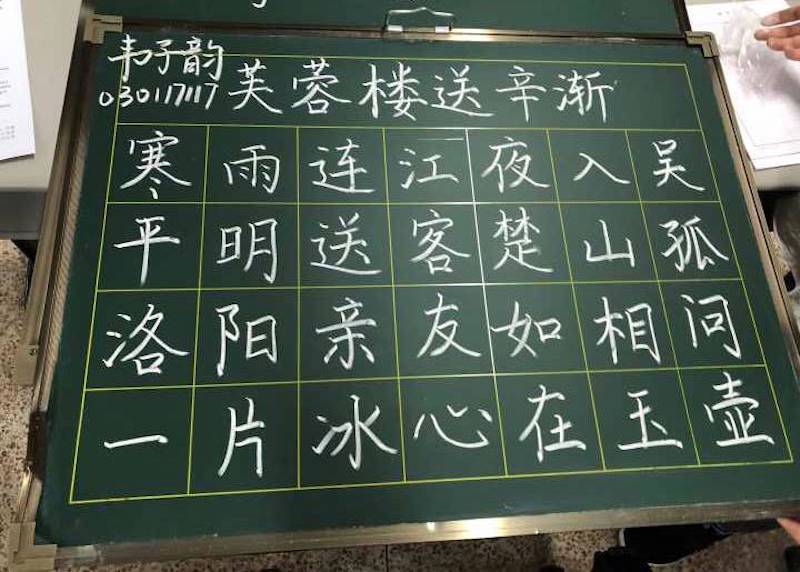 韦子韵
030117117
芙蓉楼送辛渐
寒雨连江夜入吴
平明送客楚山孤
洛阳亲友如相问
一片冰心在玉壶